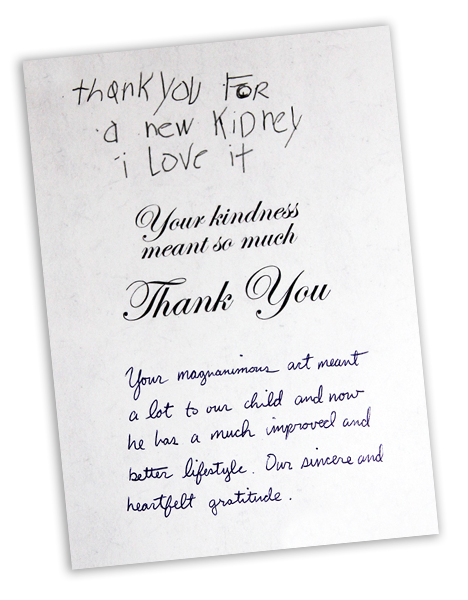 thank you FoR
a new KiDney
i Love it
Your kindness
meant so much
Thank You
Your magnanimous act meant
a lot to our child and now
he has a much improved and
better lifestyle. Our sincere and
heartfelt gratitude.